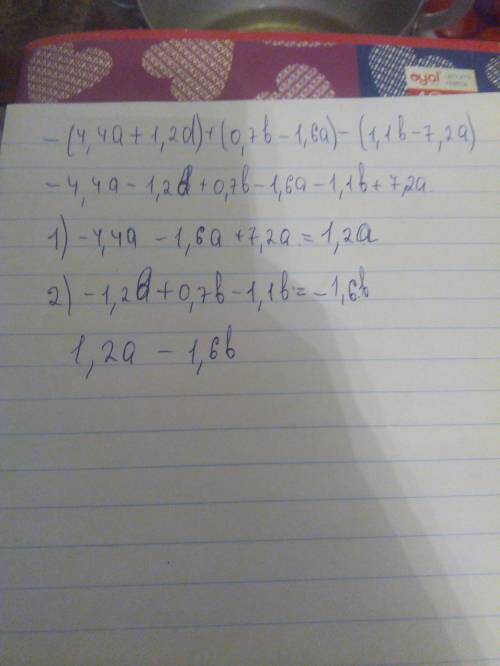 oyal
-(4,4a+1,2d)+(0,7b-1,6a)-(1,1b-7,2a)
-4,4a-1,2d+0,7b-1,6a-1,1b+7,2a.
1) -4,4a -1,6a+7,2a=1,2a
2) -1,2d+0,7b-1,1b=-1,6b
1,2a - 1,6b